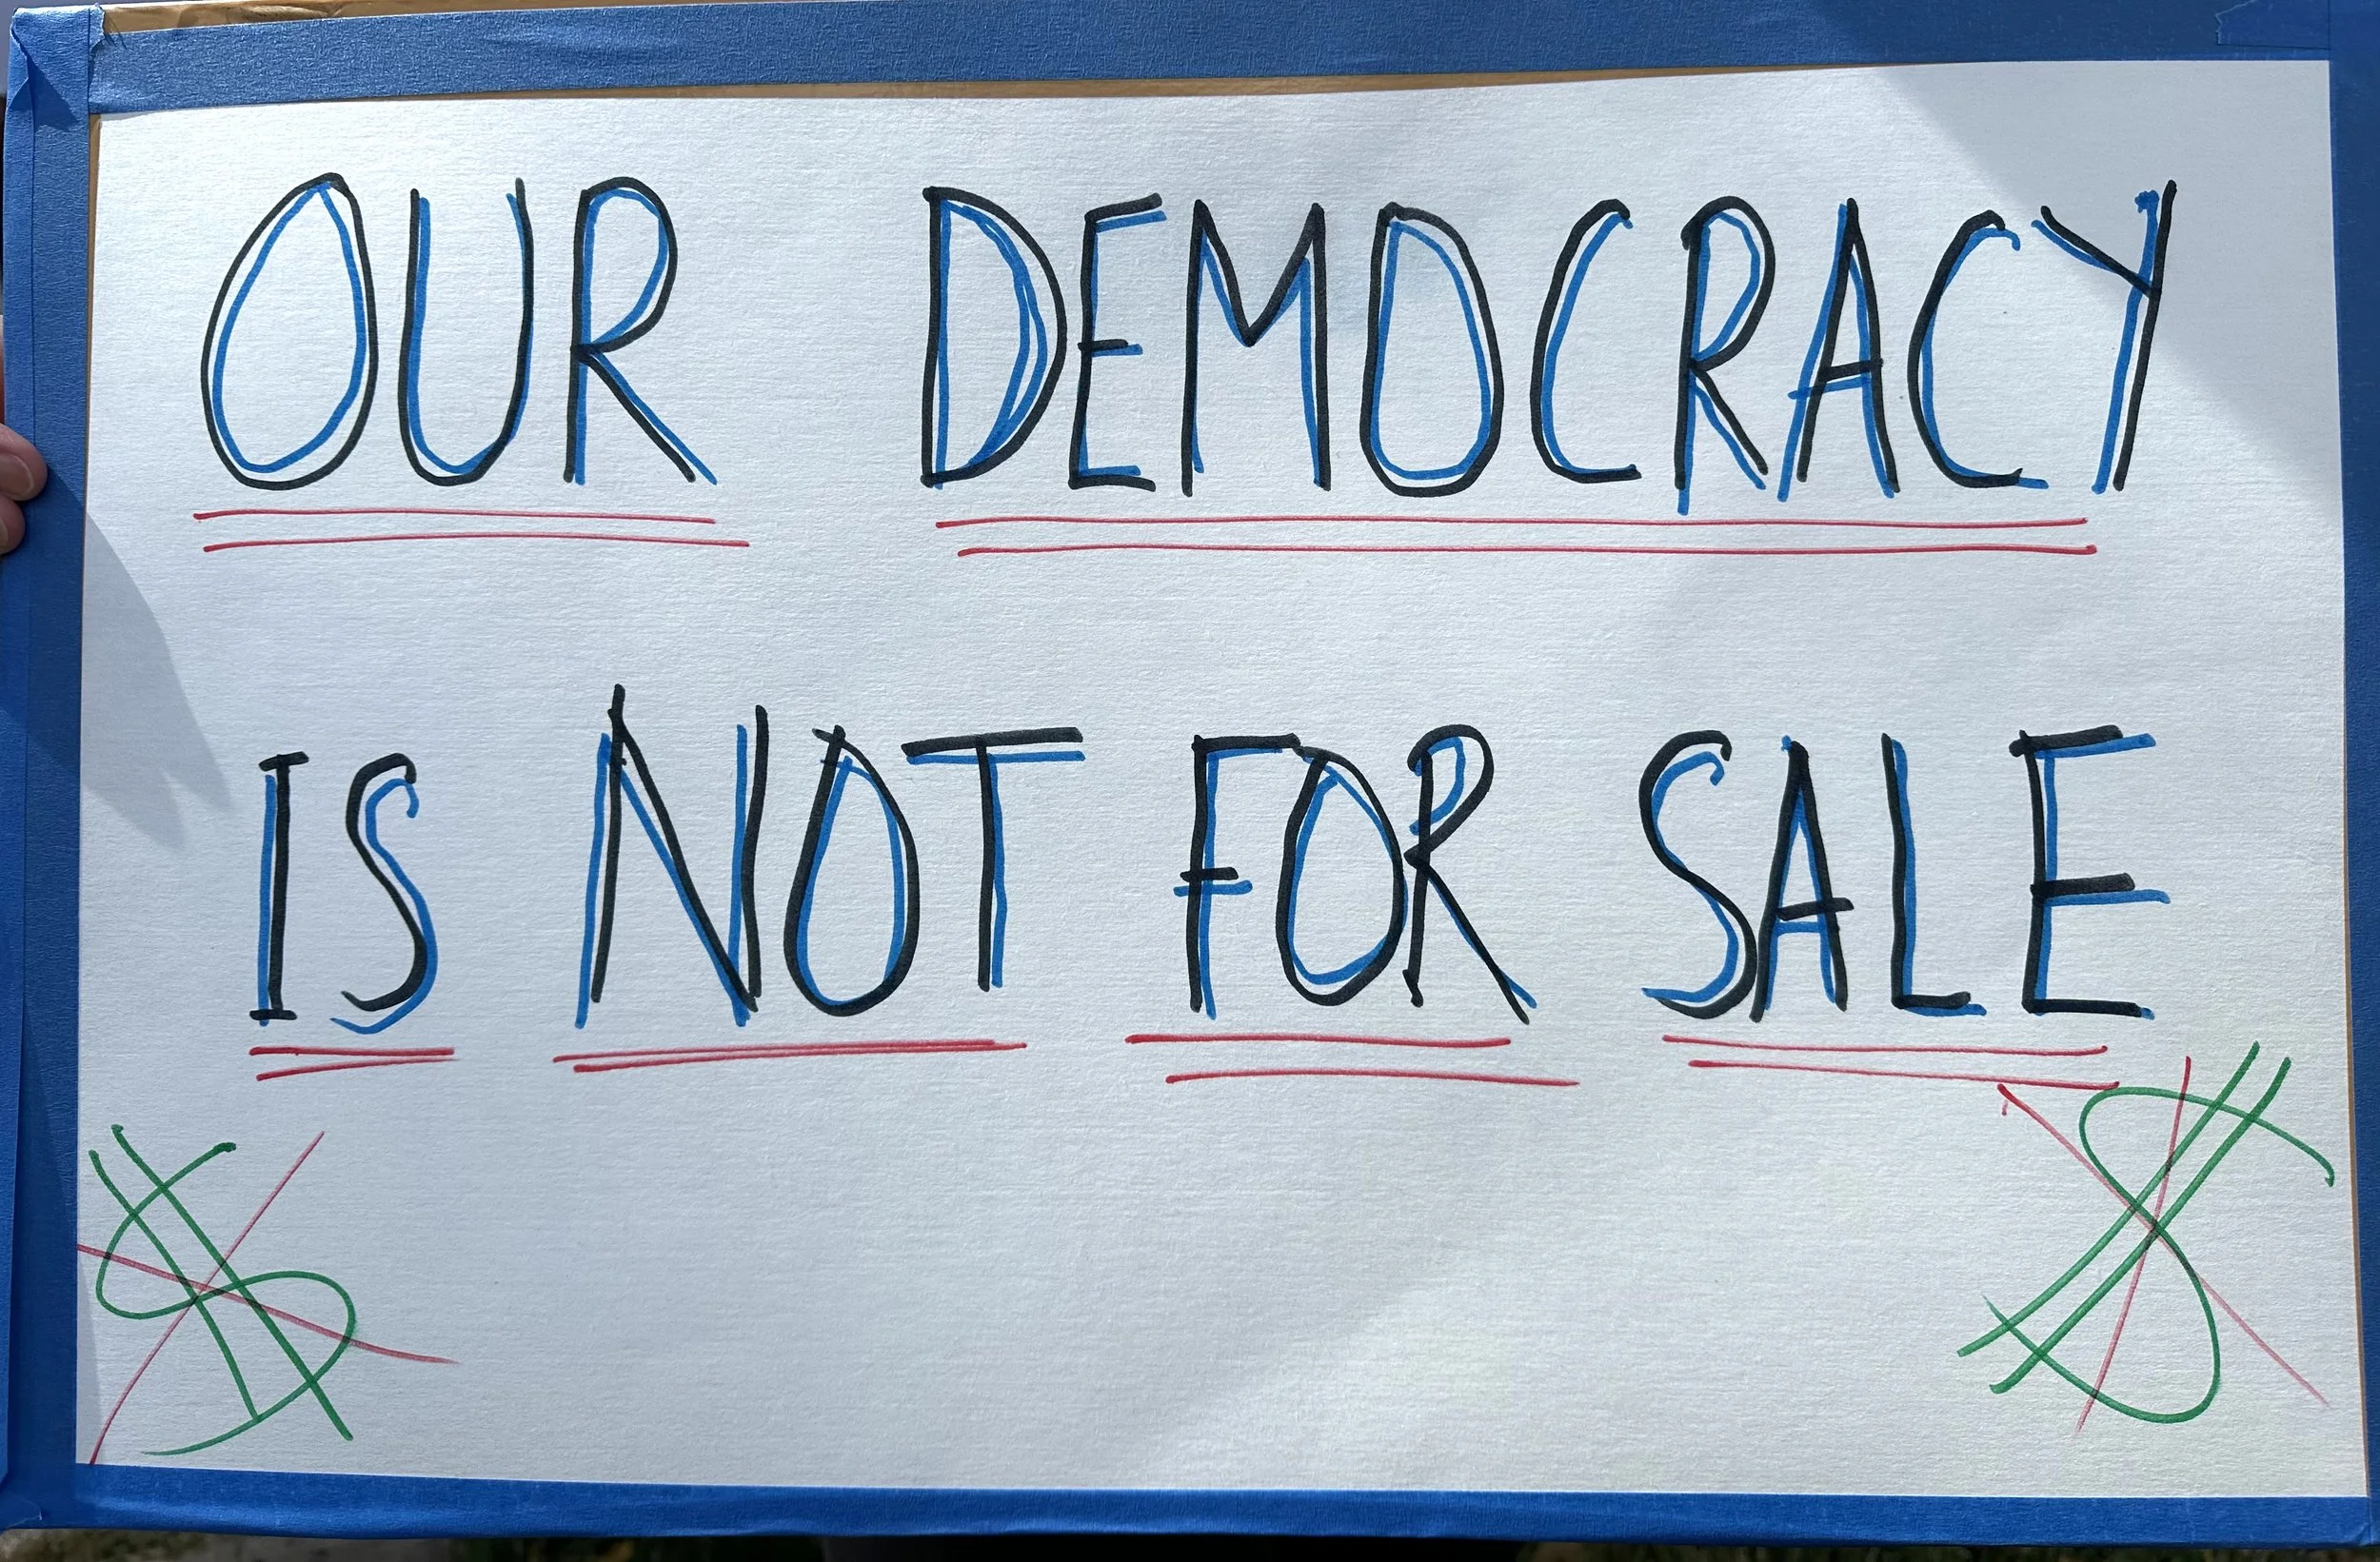 OUR DEMOCRACY
IS NOT FOR SALE
$ $